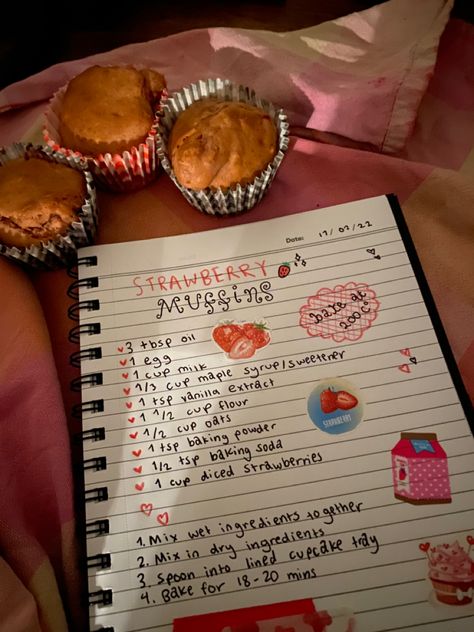 Date:
STRAWBERRY
MUFFINS
bake at
200°C
3 tbsp oil
1 egg
1 cup milk
1/3 cup maple syrup/sweetener
1 tsp vanilla extract
1 1/2 cup flour
1/2 cup oats
1 tsp baking powder
1/2 tsp baking soda
1 cup diced strawberries
STRAWBERRY
1. Mix wet ingredients together
2. Mix in dry ingredients
3. Spoon into lined cupcake tray
4. Bake for 18-20 mins